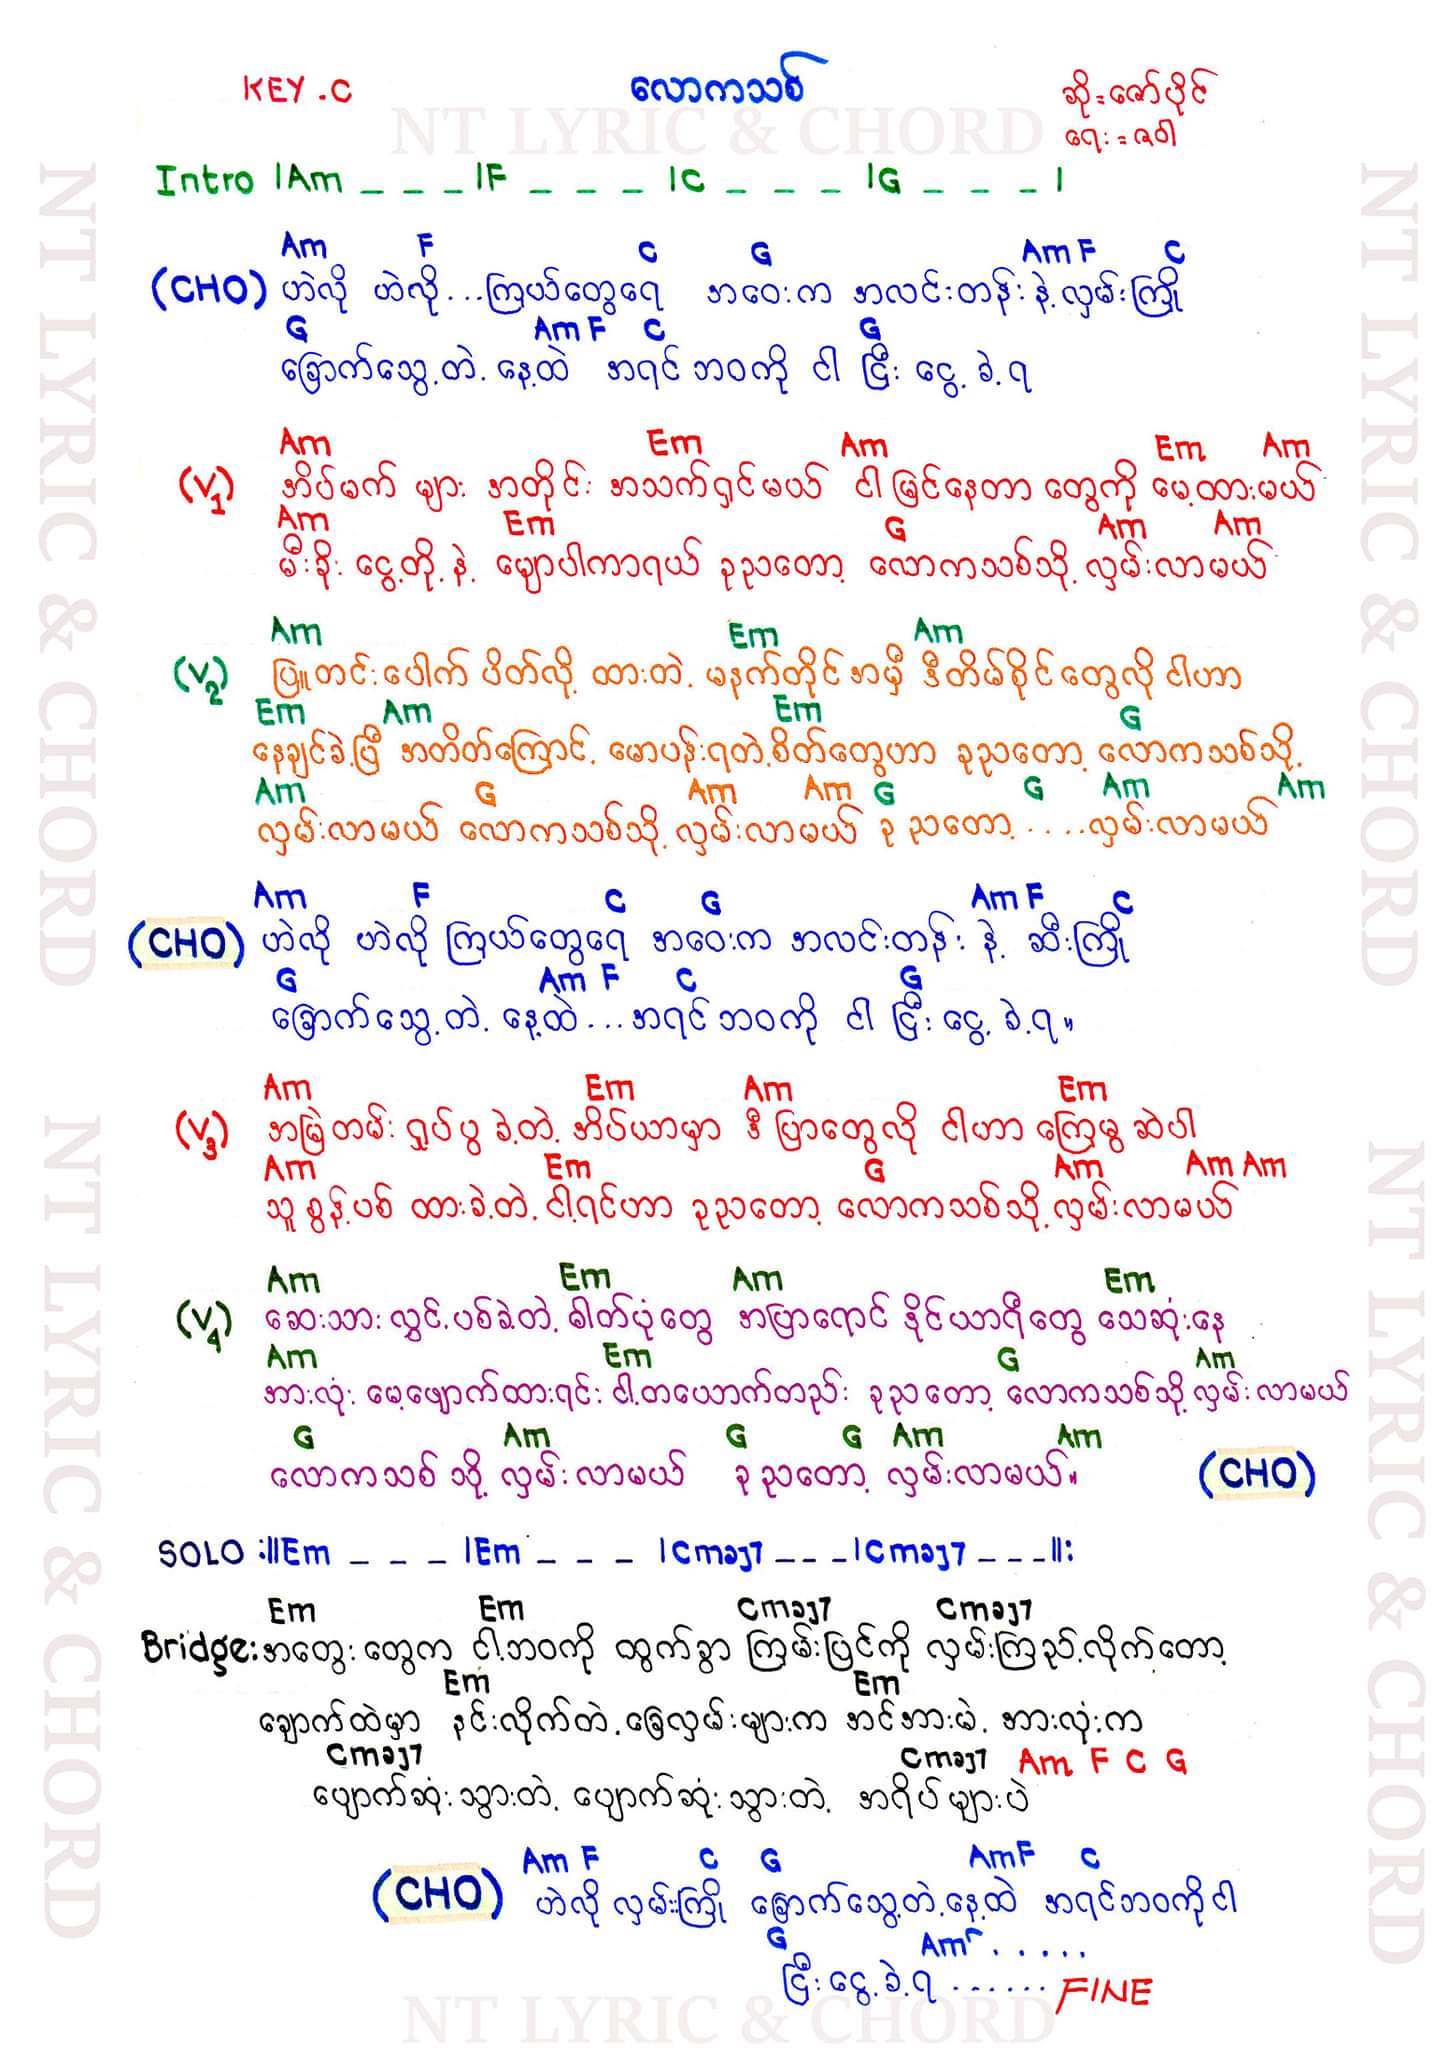 KEY.C
လောကသစ်
ဆို=ဇော်ပိုင်
ရေး=ဇဝါ
NT LYRIC & CHORD
Intro |Am _ _ _ |F _ _ _ |C _ _ _ |G _ _ _ |
Am F C G Am F C
(CHO) ဟဲလို ဟဲလို...ကြယ်တွေရေ အဝေးက အလင်းတန်းနဲ့ လှမ်းကြို
G Am F C G
ခြောက်သွေ့တဲ့ နေ့ထဲ အရင်ဘဝကို ငါ ငြီးငွေ့ခဲ့ရ
Am Em Am Em Am
(V1) အိပ်မက် များ အတိုင်း အသက်ရှင်မယ် ငါ မြင်နေတာ တွေကို မေ့ထားမယ်
Am Em G Am Am
မီးခိုး ငွေ့တို့နဲ့ မျောပါကာရယ် ခုညတော့ လောကသစ်သို့ လှမ်းလာမယ်
Am Em Am
(V2) ပြူတင်းပေါက် ပိတ်လို့ ထားတဲ့ မနက်တိုင်အမှီ ဒီတိမ်စိုင်တွေလို ငါဟာ
Em Am Em G
နေချင်ခဲ့ပြီ အတိတ်ကြောင့် မောပန်းရတဲ့စိတ်တွေဟာ ခုညတော့ လောကသစ်သို့
Am G Am Am G G Am Am
လှမ်းလာမယ် လောကသစ်သို့ လှမ်းလာမယ် ခု ညတော့.....လှမ်းလာမယ်
Am F C G Am F C
(CHO) ဟဲလို ဟဲလို ကြယ်တွေရေ အဝေးက အလင်းတန်း နဲ့ ဆီးကြို
G Am F C G
ခြောက်သွေ့တဲ့ နေ့ထဲ...အရင်ဘဝကို ငါ ငြီးငွေ့ခဲ့ရ။
Am Em Am Em
(V3) အမြဲတမ်း ရှုပ်ပွ ခဲ့တဲ့ အိပ်ယာမှာ ဒီ ပြာတွေလို ငါဟာ ကြေမွ ဆဲပါ
Am Em G Am Am Am
သူစွန့်ပစ် ထားခဲ့တဲ့ ငါ့ရင်ဟာ ခုညတော့ လောကသစ်သို့ လှမ်းလာမယ်
Am Em Am Em
(V4) ဆေးသား လွှင့်ပစ်ခဲ့တဲ့ ဓါတ်ပုံတွေ အပြာရောင် ဒိုင်ယာရီတွေ သေဆုံးနေ
Am Em G Am
အားလုံး မေ့ဖျောက်ထားရင်း ငါ့တယောက်တည်း ခုညတော့ လောကသစ်သို့ လှမ်းလာမယ်
G Am G G Am Am
လောကသစ်သို့ လှမ်းလာမယ် ခု ညတော့ လှမ်းလာမယ်။ (CHO)
SOLO :||Em _ _ _ |Em _ _ _ |Cmaj7 _ _ _ |Cmaj7 _ _ _||:
Em Em Cmaj7 Cmaj7
Bridge: အတွေးတွေက ငါ့ဘဝကို ထွက်ခွာ ကြမ်းပြင်ကို လှမ်းကြည့်လိုက်တော့
Em Em
ချောက်ထဲမှာ နင်းလိုက်တဲ့ ခြေလှမ်းများက အင်အားမဲ့ အားလုံးက
Cmaj7 Cmaj7 Am F C G
ပျောက်ဆုံးသွားတဲ့ ပျောက်ဆုံးသွားတဲ့ အရိပ်များပဲ
Am F C G Am F C
(CHO) ဟဲလို လှမ်းကြို ခြောက်သွေ့တဲ့နေ့ထဲ အရင်ဘဝကိုငါ
G Am.....
ငြီးငွေ့ခဲ့ရ......FINE
NT LYRIC & CHORD
NT LYRIC & CHORD
NT LYRIC & CHORD
NT LYRIC & CHORD
NT LYRIC & CHORD